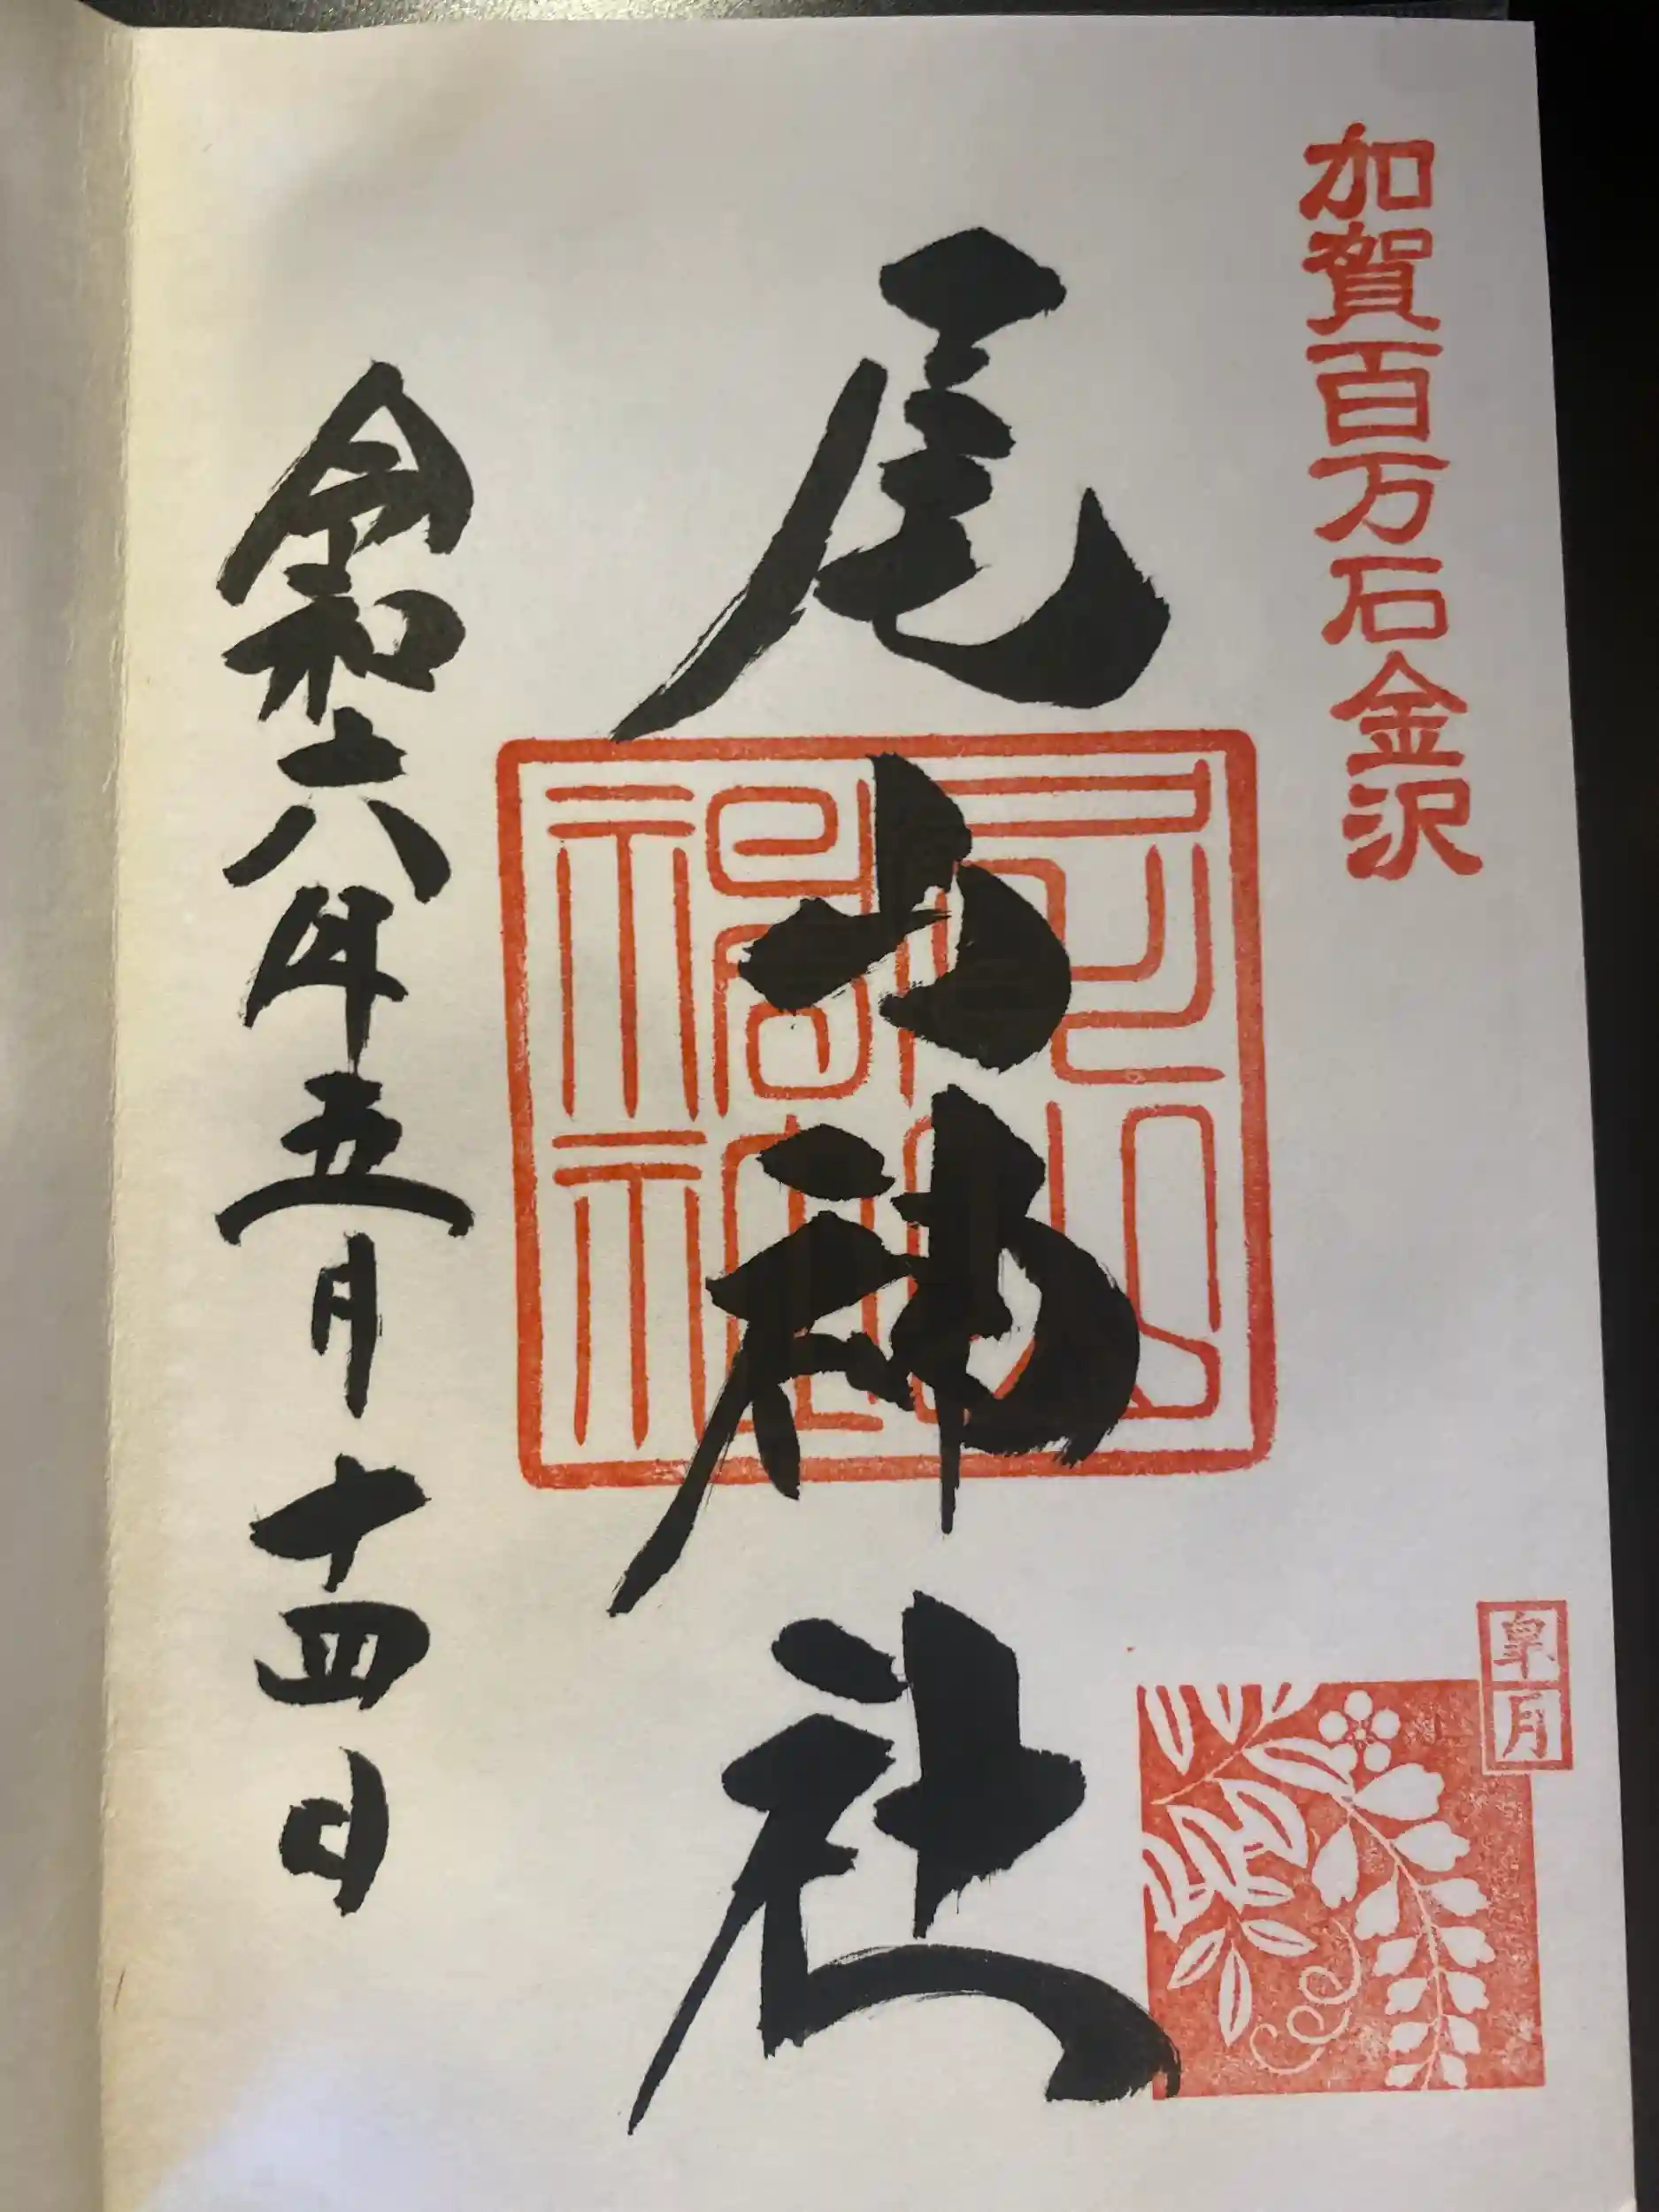 加賀百万石金沢
皐月
尾山神社
尾山神社
令和六年五月十四日